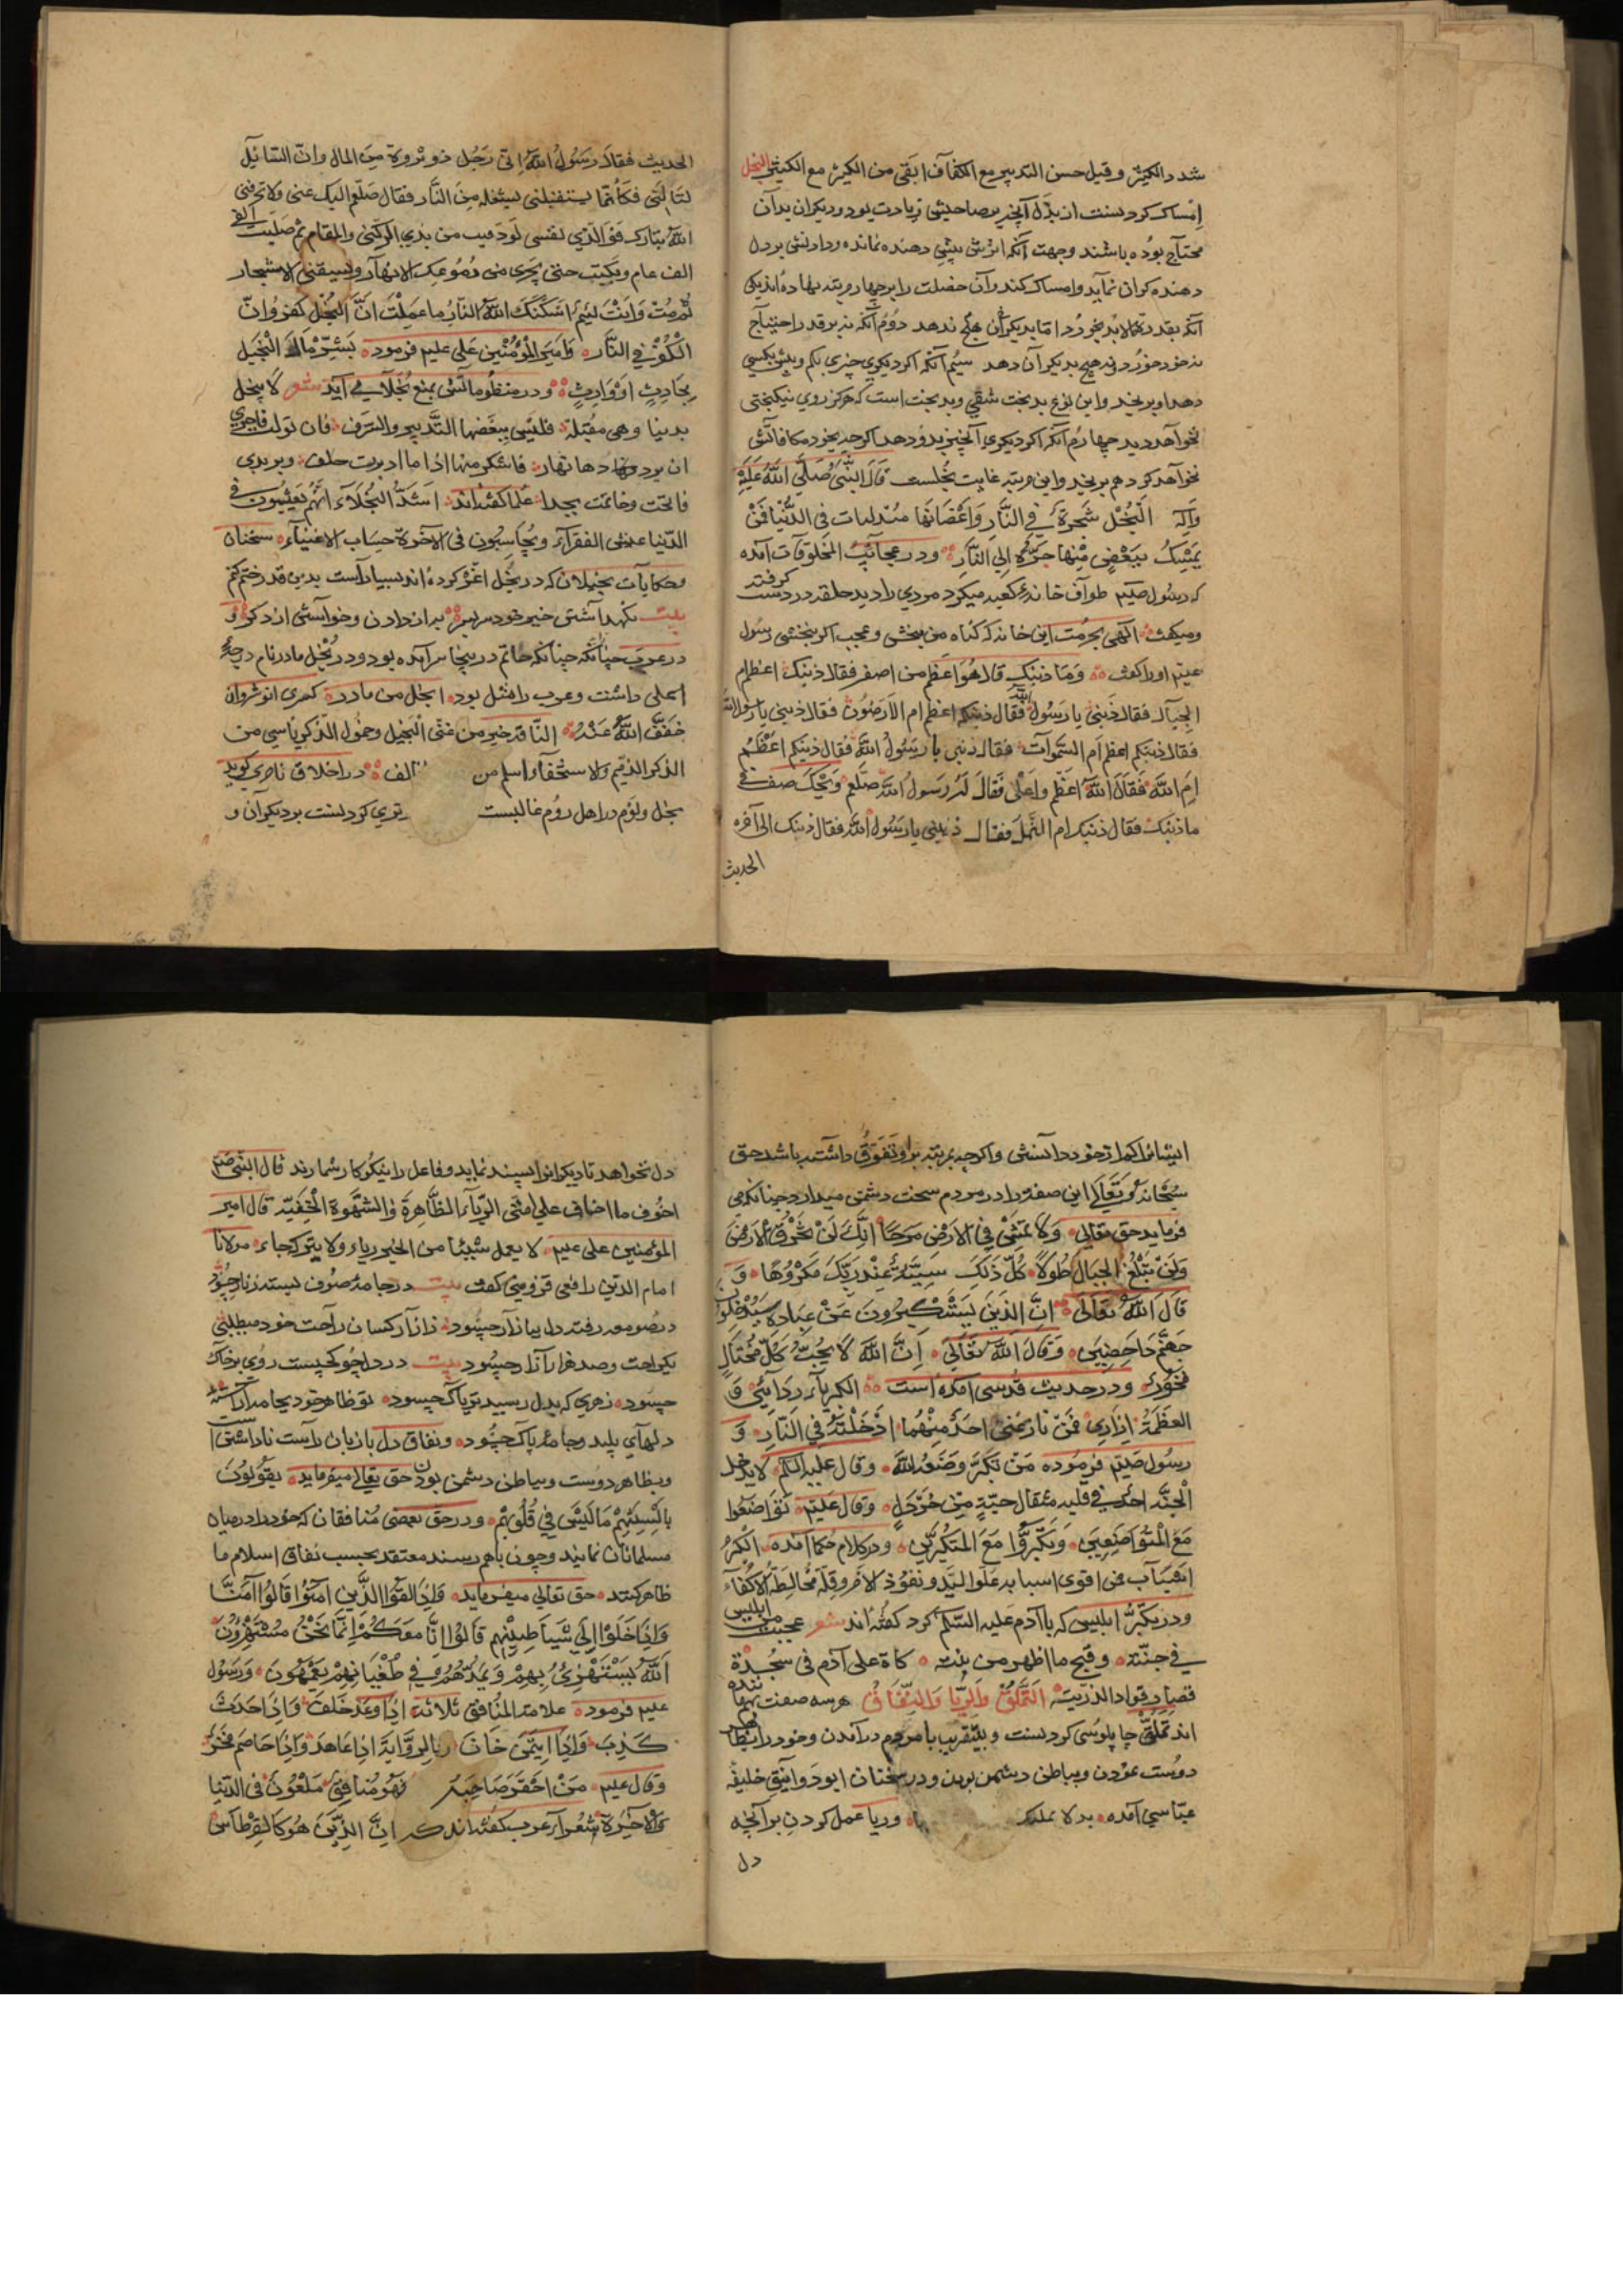 شدد الكثير و قيل حسن التدبير مع الكفآف ابقى من الكثير مع الكثيثى البخل
امساك كردنست از بذل آنچيز بصاحبش زيادت بود و ديكران بدآن
محتآج بوده باشند وجهت آنكه ارزش پيش دهنده نمانده و دادنش بر دل
دهنده كران نمآيد و امساك كند و آن خصلت را بر چهار مرتبه نهاده اند يكى
آنكه بقدر مالابد بخورد اما بديكرآن هيچ ندهد دوم آنكه نه بر قدر احتيآج
نه خود خورد و نه هيچ بديكرآن دهد سيم آنكه اكر ديكرى چيزى بكم و بيش بكسى
دهد او برنجد و اين نوع بدبخت شقى و بدبخت است كه هركز روي نيكبختى
نخوآهد ديد چهارم آنكه اكر ديكرى آنچيز بدو دهد اكرچه بخود مكافآتش
نخوآهد كرد هم برنجد و اين مرتبه غايت بخلست قال النبى صلى الله عليه
وآله البخل شجرة فى النار و اغصانها متدليات فى الدنيا فمن
يمسك ببعض منها جره الى النار و در عجآئب المخلوقات آمده
كه رسول صلعم طوآف خانهٔ كعبه ميكرد مردي را ديد حلقه در دست كرفته
و ميكفت الهى بحرمت اين خانه كه كناه من ببخشى و عجب اكر ببخشى رسول
عليم او را كفت وما ذنبك قال هو اعظم من اصفر فقال ذنبك اعظم ام
الجبآل فقال ذنبى يا رسول الله فقال ذنبك اعظم ام الارضون فقال ذنبى يا رسول الله
فقال ذنبكم اعظم ام السموآت فقال ذنبى يا رسول الله فقال ذنبكم اعظم
ام الله فقال الله اعظم واعلى فقال له رسول الله صلعم ويحك صف لى
ما ذنبك فقال ذنبك ام النمل فقال ذنبى يا رسول الله فقال ذنبك الى آخره
الحديث
الحديث فقال رسول الله انى رجل ذو ثروة من المال وان السائل
ليسالنى فكانما يستقبلنى بشعلة من النار فقال صلعم اليك عنى ولا تحرقنى
الله تبارك فو الذى نفسى لو قمت من بدي الركن والمقام ثم صليت الفى
الف عام وبكيت حتى يجرى من دموعك الانهآر ويسقى الاشجار
ثم مت وانت لئيم اسكنك الله النار ما عملت ان البخل كفر وان
الكفر فى النار و امير المؤمنين على عليم فرموده بشر مال البخيل
بحادث او وارث و در منظوماتش بمنع بخلآ مى آيد شعر لا بخل
بدنيا وهى مقبلة فليس ينقصها التدبير والسرف فان تولت فاحرى
ان يود بها دهاتهار فاشكر منها اذا ما ادبرت خلف و بر بدى
فاتحت و خاتمت بجدا علما كفته اند اشد البخلآء انهم يعيشون فى
الدنيا عيش الفقرآء ويحاسبون فى الآخرة حساب الاغنيآء سخنان
و حكايآت بخيلان كه در بخل اغرق كرده اند بسيارآست بدين قدر ختم كنم
بيت نكهدآشتن خيره خود مرهبره به از دادن و خوآستن از دكره و
در عرب چنآنكه چنانكه حاتم در سخا سر آمده بود و در بخل مادر نام درجهٔ
اعلى داشت و عرب را مثل بود ابخل من مادر كسرى انوشروان
خفف الله عنه الناقة خير من غنى البخيل وخمول الذكر ناسى من
الذكر الذميم ولا ستحقآر اسلم من الف در اخلاق ناصرى كويد
بخل و لوم در اهل روم غالبست ترى كردنست بر ديكرآن و
ايشانرا كمتر از خود دآنستن و اكرچه بمرتبه بر او تفوق دآشته باشد حق
سبحانه و تعالى اين صفت را در مردم سخت دشمن ميدارد چنانكه مى
فرمايد حق تعالى ولا تمش فى الارض مرحا انك لن تخرق الارض
ولن تبلغ الجبال طولا كل ذلك سيئه عند ربك مكروها و
قال الله تعالى ان الذين يستكبرون عن عبادة سيدخلون
جهنم داخصين وقال الله تعالى ان الله لا يحب كل مختال
فخور و در حديث قدسى آمده است الكبريآء ردآئى و
العظمة ازارى فمن نازعنى احد منهما ادخلته فى النار و
رسول صلعم فرموده من تكبر وضعه الله وقال عليه السلم لا يدخل
الجنة احد فى قلبه مثقال حبة من خردل وقال عليم تواضعوا
مع المتواضعين وتكبروا مع المتكبرين و در كلام حكما آمده الكبر
اكتسآب من اقوى اسبابه علو اليد ونفوذ الامر وقلة مخالطة الاكفآء
و در تكبر ابليس كه با آدم عليه السلم كرد كفته اند شعر عجبت من ابليس
فى جنته وقبح ما اظهر من نيته كاة على آدم فى سجدة
فصار قوادا لذريته التملق والريا والنفاق هر سه صفت بهم
اند تملق چاپلوسى كردنست و بتقريب با مردم درآمدن و خود را بظاهر
دوست نمودن و بباطن دشمن بودن و در سخنان ابو دوانيق خليفه
عباسى آمده بدلا عملك و ريا عمل كردن بر آنچه
دل
دل نخواهد تا ديكرانرا پسند نمايد و فاعل را نيكوكار شمارند قال النبى صلعم
اخوف ما اخاف على امتى الريآء الظاهرة والشهوة الخفية قال امير
المؤمنين على عليم لا يعمل شيئا من الخير رياء ولا يتركه حياء مولانا
امام الدين رافعى قزوينى كفت بيت در جامهٔ صوف بسته زنار چسود
در صومعه رفته دل ببازآر چسود ز آزار كسان راحت خود ميطلبى
يكراحت و صد هزار آزار چسود بيت در دل چو كجيست روى بر خاك
چسود زهرى كه بدل رسيد ترياك چسود تو ظاهر خود بجامه آراسته
دلهآى پليد و جامهٔ پاك چسود و نفاق دل با زبان رآست ناداشتن است
و بظاهر دوست و بباطن دشمن بودن حق تعالى ميفرمايد يقولون
بالسنتهم ما ليس فى قلوبهم و در حق بعضى منافقان كه خود را در ميان
مسلمانان نمايند و چون باهم رسند معتقد بحسب نفاق اسلام ما
ظاهر كنند حق تعالى ميفرمايد واذا لقوا الذين آمنوا قالوا آمنا
واذا خلوا الى شياطينهم قالوا انا معكم انما نحن مستهزؤن
الله يستهزئ بهم ويمدهم فى طغيانهم يعمهون و رسول
عليم فرموده علامة المنافق ثلاثة اذا وعد خلف واذا حدث
كذب واذا ايتمن خان و بالروايه اذا عاهد واذا خاصم فخر
وقال عليم من احقر صاحبه فهو منافق ملعون فى الدنيا
والآخرة شعرآء عرب كفته اند كه ان الذين هو كالقرطاس